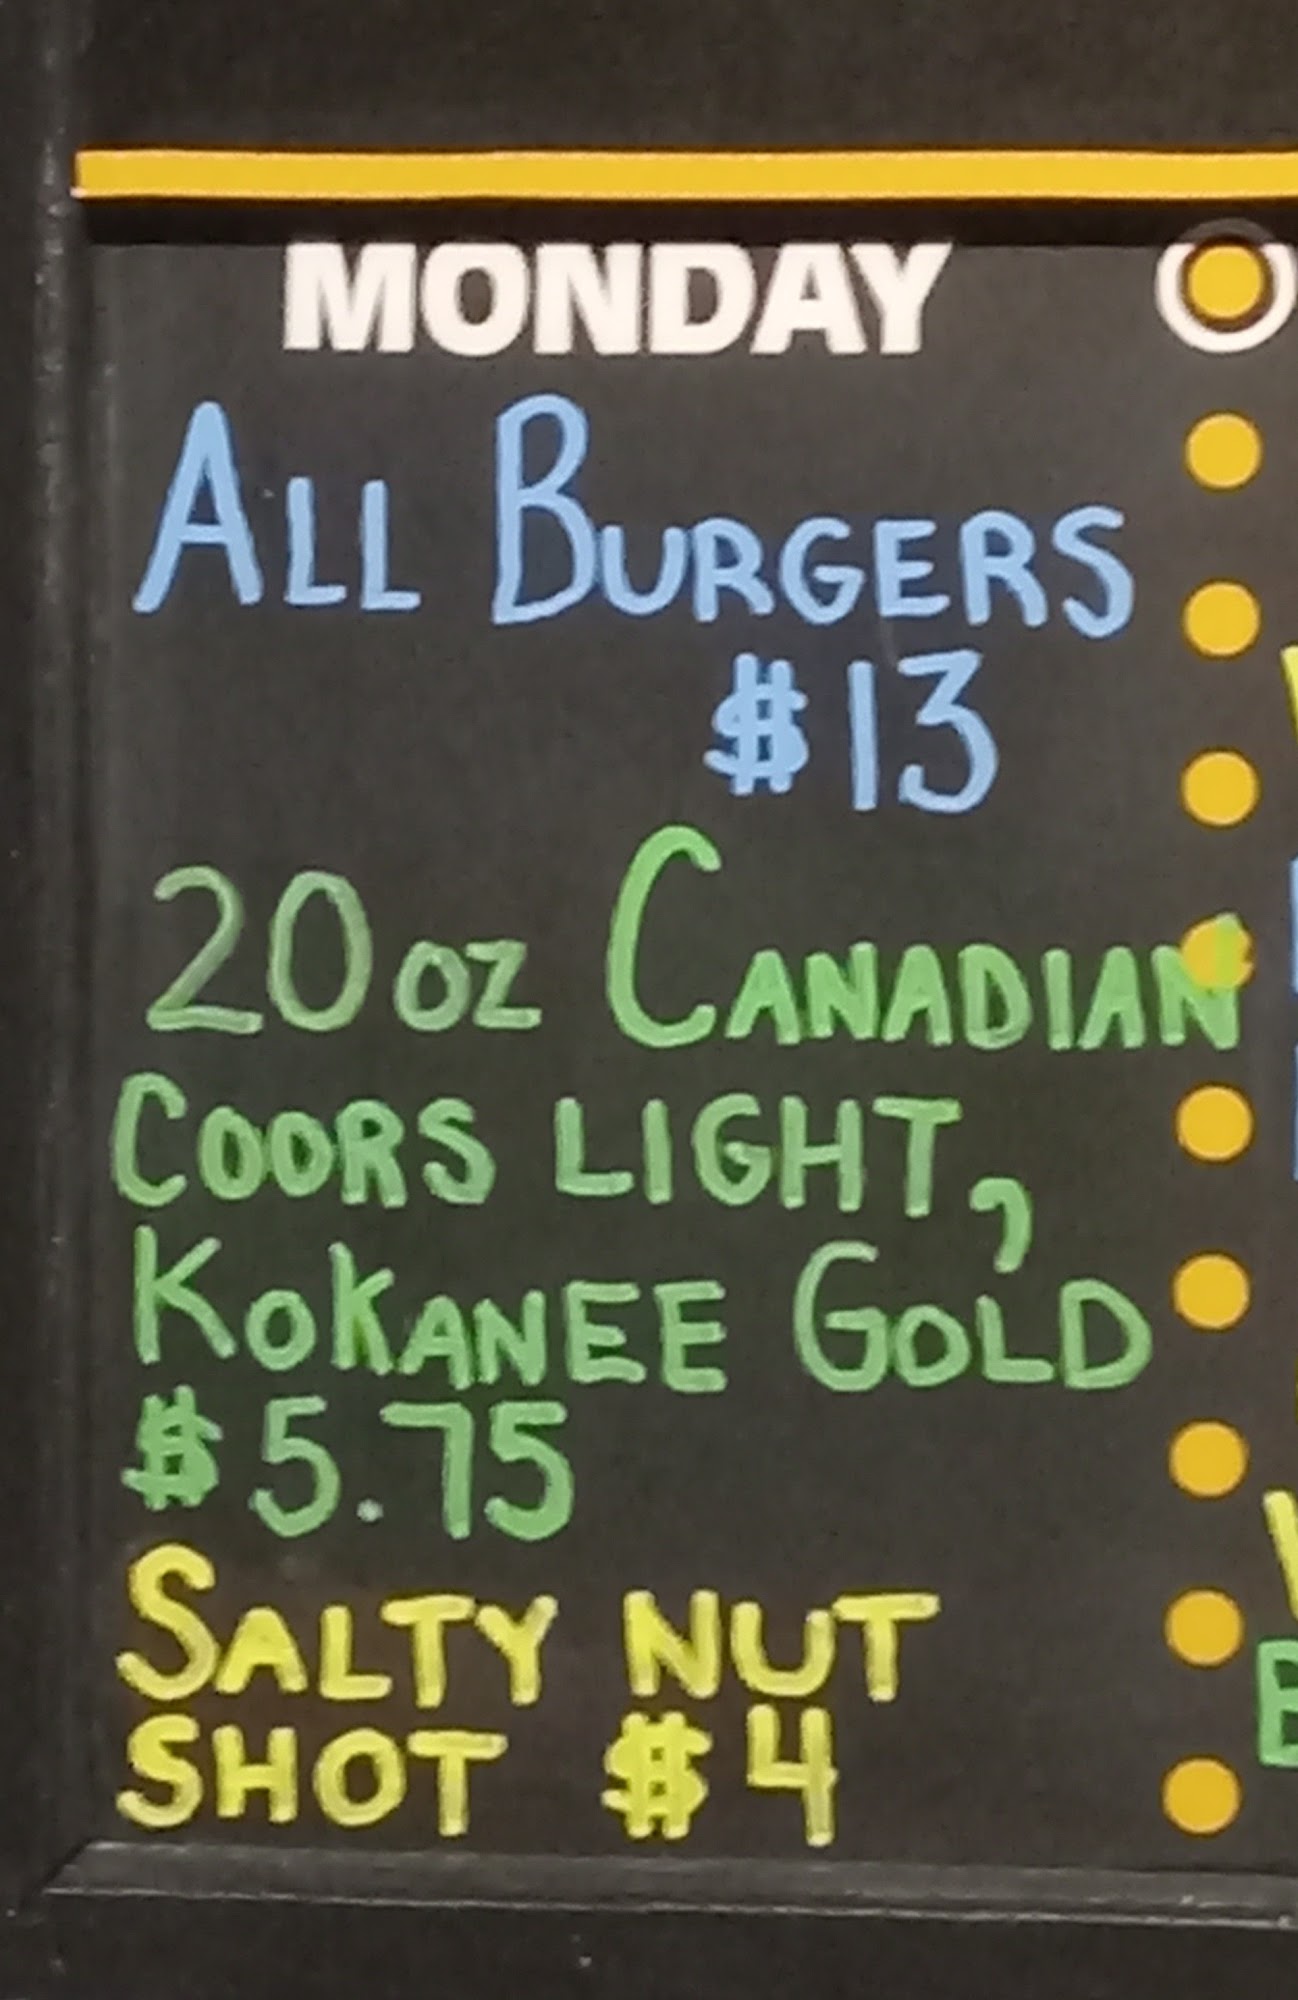 MONDAY
ALL BURGERS
$13
20 oz CANADIAN
COORS LIGHT,
KOKANEE GOLD
$5.75
SALTY NUT
SHOT $4